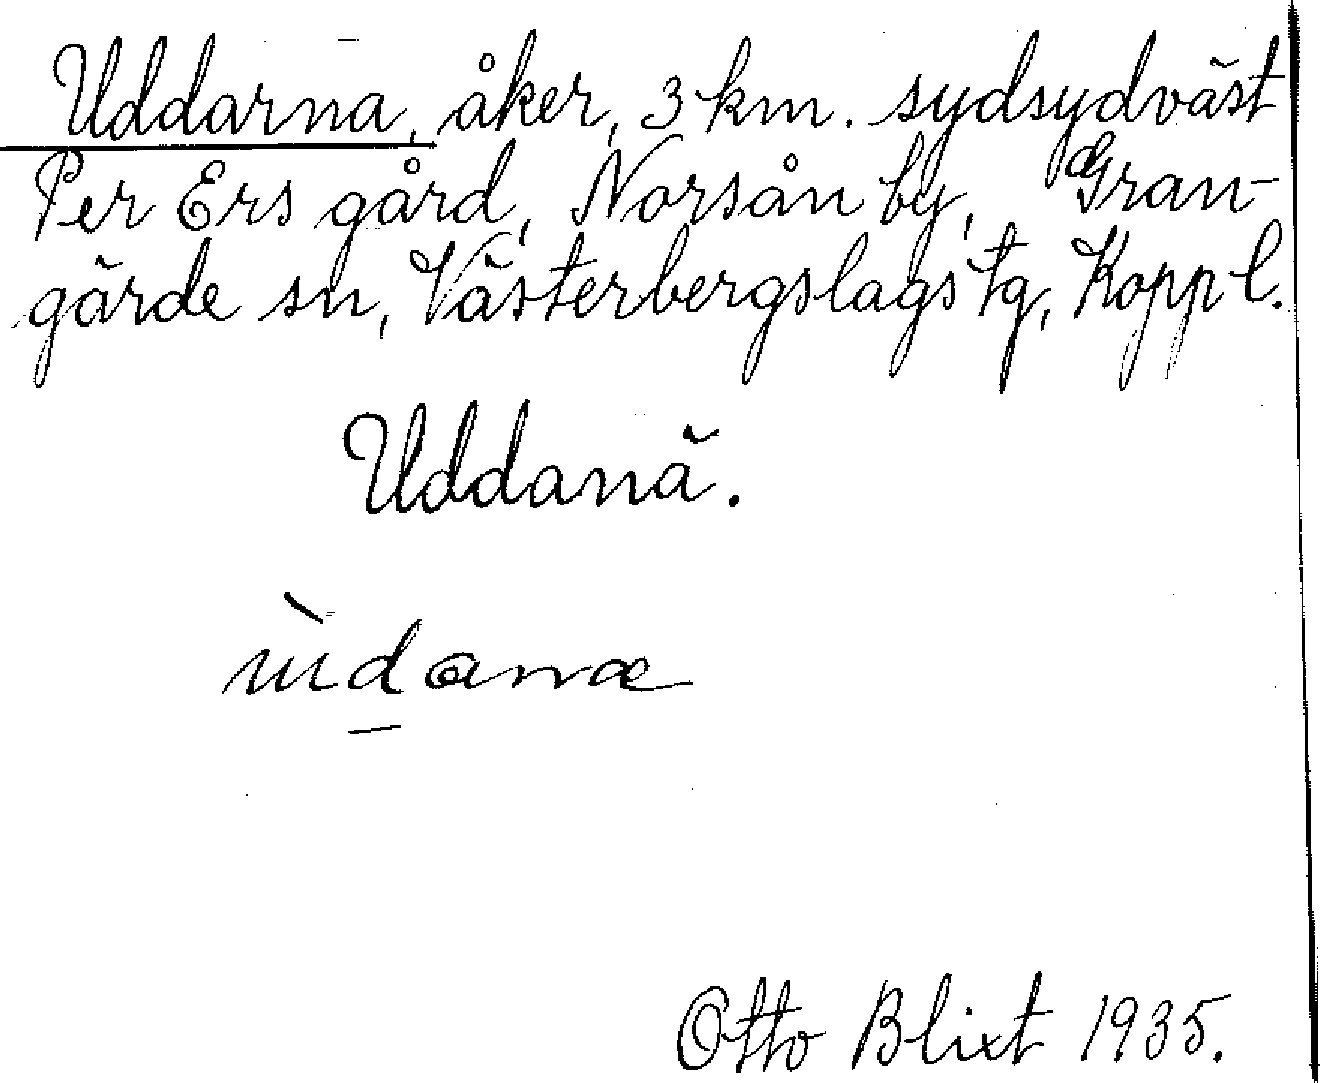 Uddarna, åker, 3 km. sydsydväst
Per Ers gård, Norsån by, Gran-
gärde sn, Västerbergslags tg, Kopp l.
Uddanä.
ùdanæ
Otto Blixt 1935.